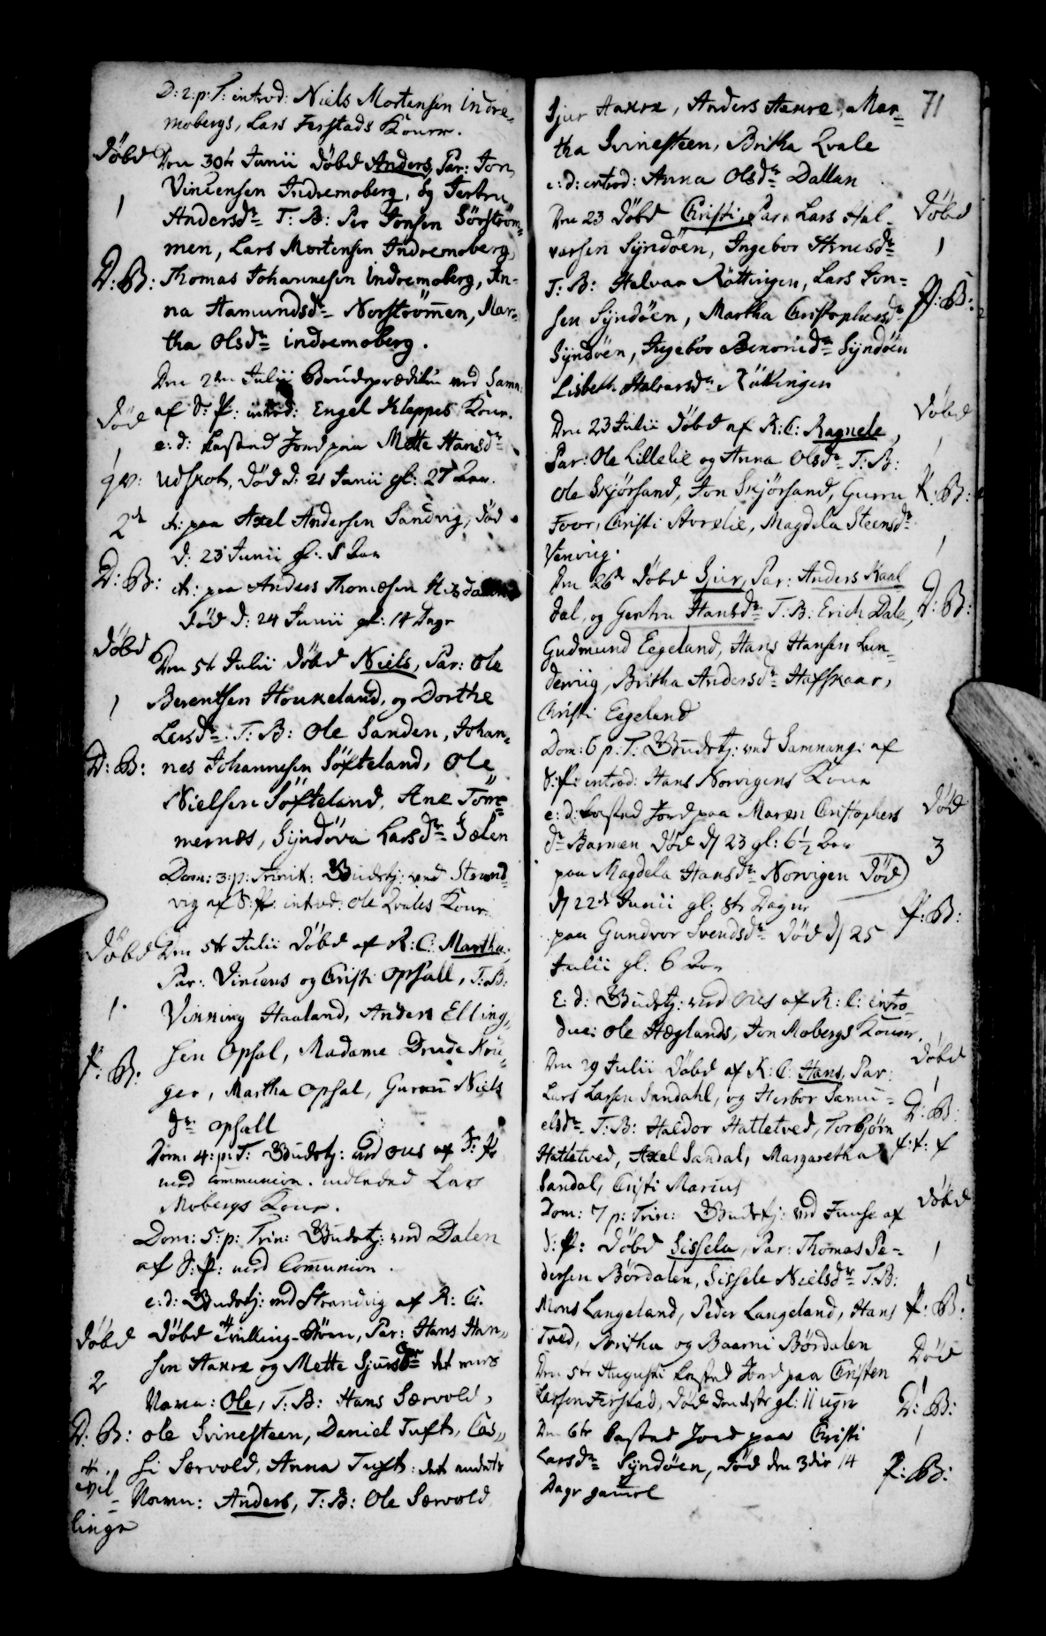 D: 2: p: T: introd: Niels Mortensen Indre-
mobergs, Lars Ferstads Koner.
Døbd Den 30te Junii Døbd Anders, Par: Jon
Vincensen Indremoberg, og Gertru
1
Andersdr T: B: Per Jonsen Sørstrøm-
men, Lars Mortensen Indremoberg,
D: B: Thomas Johannesen Indremoberg, An-
na Hamundsdr Norstrømen, Mar-
tha Olsdr indremoberg.
Den 2den Julii Bededsprædiken ved Samn:
af S: P: introd: Engel Kleppes Kone.
Død e: d: kasted Jord paa Mette Hansdr
1
qv: Udskot, Død d: 21 Junii gl: 27 Aar
it: paa Axel Andersen Sandvig, Død
2
d: 23 Junii gl: 5 Aar
D: B: it: paa Anders Thomesen Hisdalens
Død d: 24 Junii gl: 14 Dage
Døbd
Den 5te Julii Døbd Niels, Par: Ole
Berentsen Houkeland, og Dorthe
1
Larsdr: T: B: Ole Sanden, Johan-
D: B: nes Johannesen Søfteland, Ole
Nielsen Søfteland, Ane Tøm-
mernes, Syndøva Larsdr Sælen
Dom: 3: p: Trinit: Gudstj: ved Strand-
vig af S: P: introd: Ole Qvales Kone
Døbd Den 5te Julii Døbd af R: C: Martha,
Par: Vincens og Cristi Opsall, T: B:
1.
Vinning Haaland, Anders Elling-
sen Opsal, Madame Drude Krü-
P: B:
ger, Martha Opsal, Guron Niels
dr Opsall
Dom: 4: p: T: Gudstj: ved Ous af S: P:
med Communion. indleded Lars
Mobergs Kone.
Dom: 5: p: Trin: Gudstj: ved Dalen
af S: P: med Comunion.
e: d: Gudstj: ved Strandvig af R: C:
Døbd Døbd Tvilling-Børn, Par: Hans Han-
sen Haure og Mette Sjursdr det eene
2
Navn: Ole, T: B: Hans Særvold,
D: B: Ole Svinesteen, Daniel Tuft, Cas-
tvil- si Særvold, Anna Tuft: det andets
linge Navn: Anders, T: B: Ole Særvold
71
Sjur Haure, Anders Haure, Mar-
tha Svinesteen, Britha Qvale
e: d: introd: Anna Olsdr Dallan
Den 23 Døbd Christi, Par: Lars Hal- Døbd
varsen Syndøen, Ingebor Arnesdr 1
T: B: Halvar Røttingen, Lars Jon-
sen Syndøen, Martha Christophersdr P: B:
Syndøen, Ingebor Benonisdr Syndøen
Lisbeth Halvarsdr Røttingen
Døbd
Den 23 Julii Døbd af R: C: Ragnele,
1
Par: Ole Lillelie og Anna Olsdr T: B:
Ole Skjørsand, Jon Skjørsand, Gurru P: B:
Foor, Christi Avrelie, Magdela Steensdr
1
Venvig.
Den 26de Døbd Sjur, Par: Anders Kaal
dal, og Gertru Hansdr T: B: Erich Dale, D: B:
Gudmund Eegeland, Hans Hansen Lun-
dervig, Britha Andersdr Hafskaar,
Christi Eegeland
Dom: 6 p: T: Gudstj: ved Samnang: af
S: P: introd: Hans Norvigens Kone
e: d: kasted Jord paa Maren Christophers Død
dr Barmen Død d 23 gl: 6½ Aar 3
paa Magdela Hansdr Norvigen Død
d 22de Junii gl: 8te Dage P: B:
paa Gundvor Svendsdr Død d 25
Julii gl: 6 Aar
E: d: Gudstj: ved Ous af R: C: intro-
duc: Ole Hæglands, Jon Mobergs Koner.
1
Døbd
Den 29 Julii Døbd af R: C: Hans, Par:
1
Lars Larsen Sandahl, og Herbor Samu-
D: B:
elsdr T: B: Haldor Hatletved, Torbjørn
Hatletved, Axel Sandal, Margaretha
Sandal, Cristi Marius
Døbd
Dom: 7 p: Trin: Gudstj: ved Fuuse af
S: P: Døbd Sissela, Par: Thomas Pe- 1
dersen Børdalen, Sissele Nielsdr T: B:
Mons Langeland, Peder Langeland, Hans P: B:
Tved, Britha og Baarni Børdalen
Død
Den 5te Augusti kasted Jord paa Christen
1
Larsen Ferstad, Død gl: 11 uger D: B:
Den 6te kasted Jord paa Christi 1
Larsdr Syndøen, Død den 3die 14 P: B:
Dage gamel